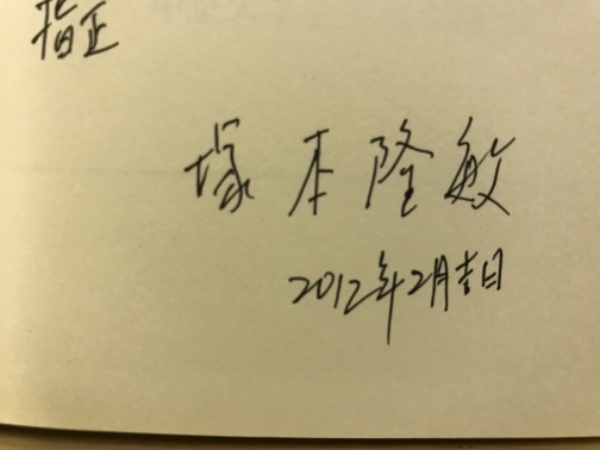 指正
塚本隆敏
2012年2月吉日